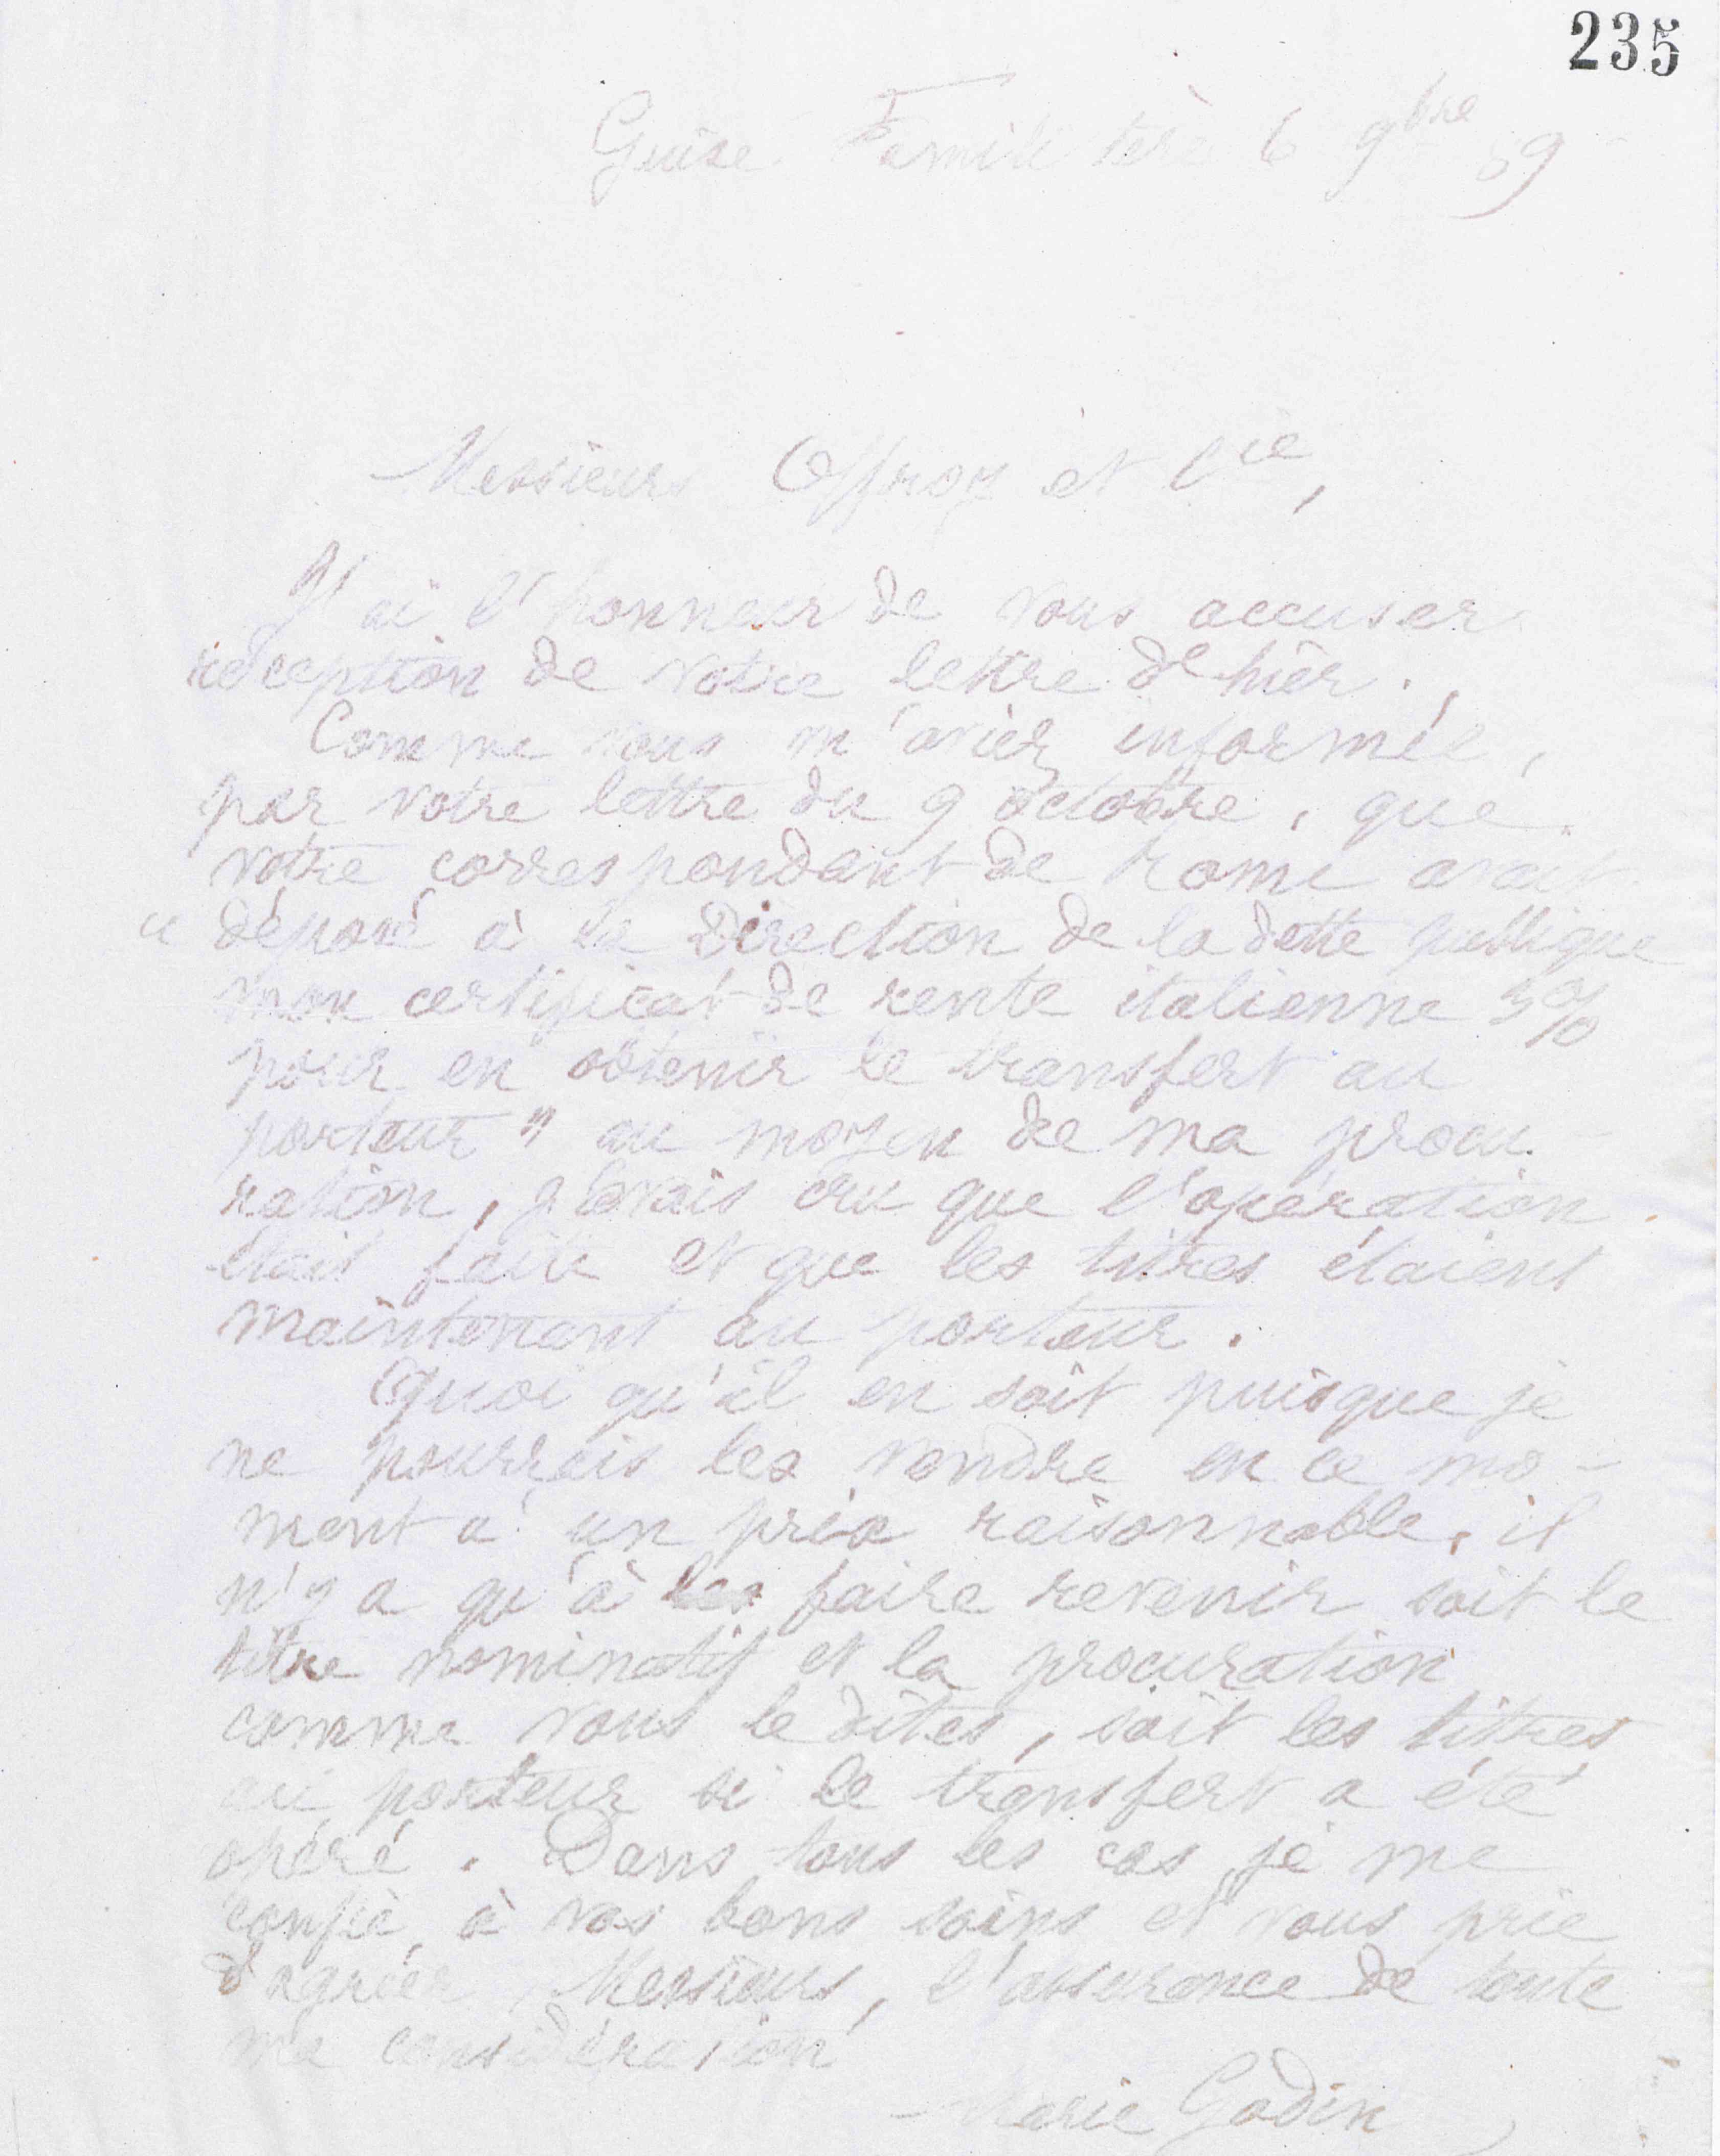 235
Guise Familistère 6 9bre 89
Messieurs Offroy et Cie,
J'ai l'honneur de vous accuser
réception de votre lettre d'hier.
Comme vous m'aviez informée,
par votre lettre du 9 octobre, que
votre correspondant de Rome avait
" déposé à la Direction de la dette publique
mon certificat de rente italienne 3%
pour en obtenir le transfert au
porteur " au moyen de ma procu-
ration, j'avais cru que l'opération
était faite et que les titres étaient
maintenant au porteur.
Quoi qu'il en soit puisque je
ne pourrais les vendre en ce mo-
ment à un prix raisonnable, il
n'y a qu'à faire revenir soit le
titre nominatif et la procuration
comme vous le dites, soit les titres
au porteur si le transfert a été
opéré. Dans tous les cas je me
confie à vos bons soins et vous prie
d'agréer, Messieurs, l'assurance de toute
ma considération
Marie Godin